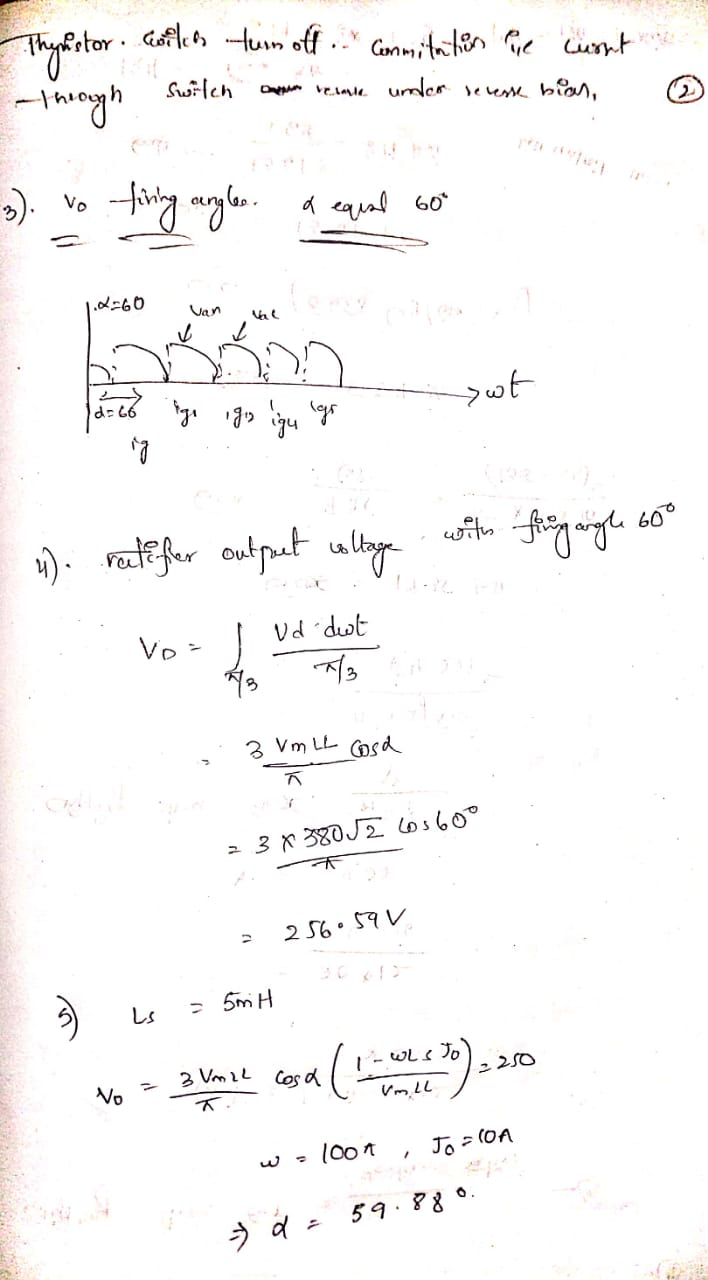 Thyristor. switch turn off .. Commitation i.e curnt
through switch under reverse bias,
②
3). Vo firing angles. α equal 60°
α=60 Van Vac
d=60 ig1 ig2 ig4 ig5
→ωt
ig
4). rectifier output voltage with firing angle 60°
VO = ∫π/3 Vd dωt / π/3
= 3 VmLL / π cosα
= 3 × 380√2 / π cos60°
= 256.59 V
5) Ls = 5mH
Vo = 3 VmLL / π. cosα (1 - ωLs Io / VmLL) = 250
ω = 100π , Io = 10A
⇒ α = 59.88°.